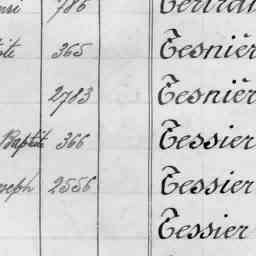 786 Tertra
365 Tesnièr
2783 Tesnièr
Baptiste 366 Tessier
seph 2556 Tessier
Tessier